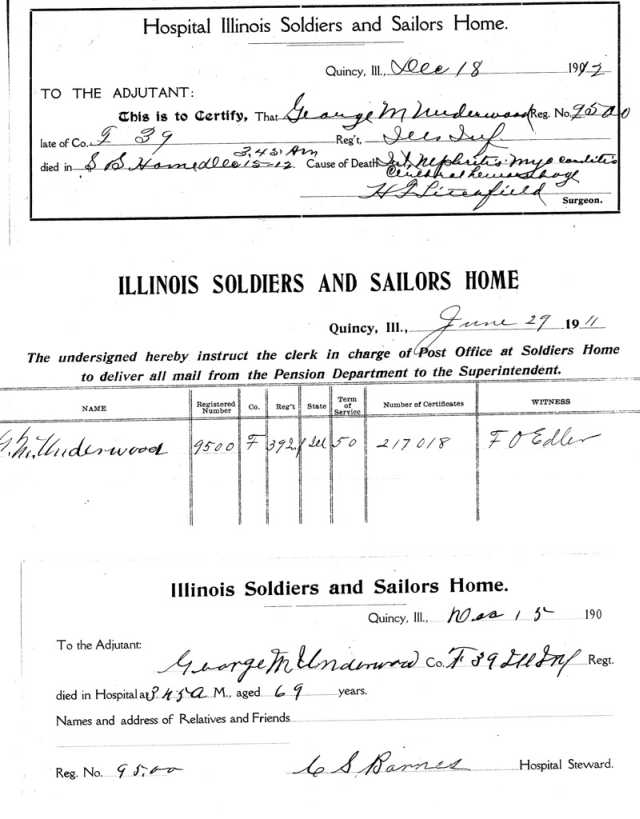 Hospital Illinois Soldiers and Sailors Home.
Quincy, Ill., Dec 18 1912
TO THE ADJUTANT:
This is to Certify, That George M Underwood Reg. No. 9500
late of Co. F 39 Reg't, Ills Inf
3.45 Am
died in S S Home Dec 15-12 Cause of Death Int Nephritis
Cerebral hemorrhage
Surgeon.
ILLINOIS SOLDIERS AND SAILORS HOME
Quincy, Ill., June 29 1911
The undersigned hereby instruct the clerk in charge of Post Office at Soldiers Home
to deliver all mail from the Pension Department to the Superintendent.
NAME Registered Number Co. Reg't State Term of Service Number of Certificates WITNESS
G. M. Underwood 9500 F 39 Ill 50 217018 F O Edler
Illinois Soldiers and Sailors Home.
Quincy, Ill., Dec 15 190
To the Adjutant:
George M Underwood Co. F 39 Ill Inf Regt.
died in Hospital at 3.45 A M., aged 69 years.
Names and address of Relatives and Friends
Reg. No. 9500 C S Barnes Hospital Steward.